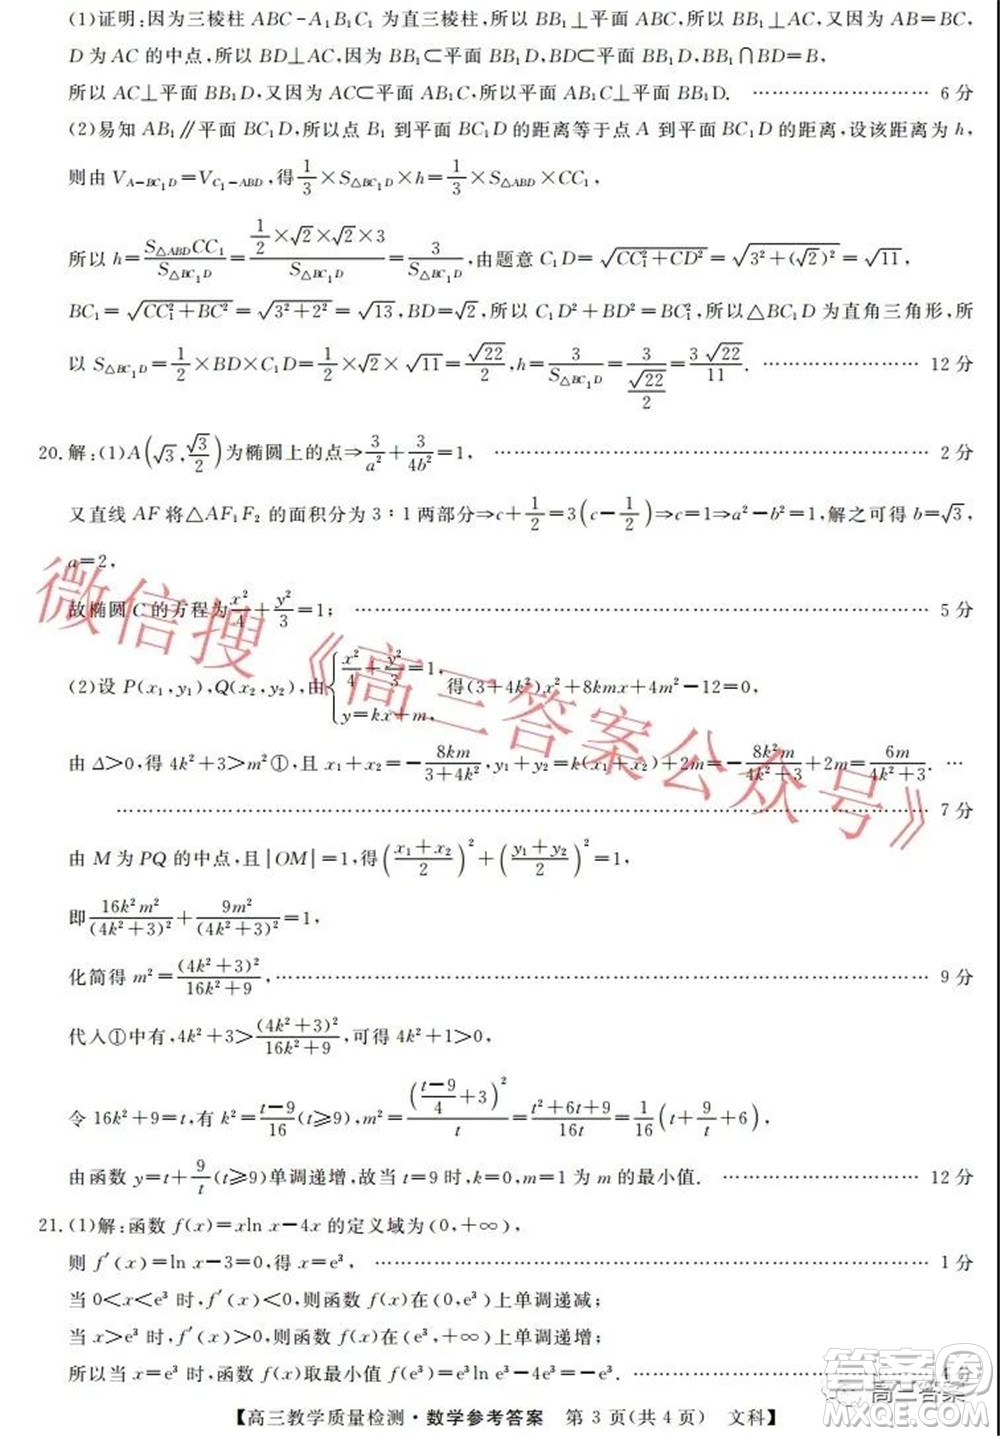 (1)证明:因为三棱柱 ABC-A₁B₁C₁ 为直三棱柱,所以 BB₁⊥平面 ABC,所以 BB₁⊥AC,又因为 AB=BC,
D 为 AC 的中点,所以 BD⊥AC,因为 BB₁⊂平面 BB₁D,BD⊂平面 BB₁D,BB₁∩BD=B,
所以 AC⊥平面 BB₁D,又因为 AC⊂平面 AB₁C,所以平面 AB₁C⊥平面 BB₁D. ……………………… 6 分
(2)易知 AB₁∥平面 BC₁D,所以点 B₁ 到平面 BC₁D 的距离等于点 A 到平面 BC₁D 的距离,设该距离为 h,
则由 V_{A-BC₁D}=V_{C₁-ABD},得 1/3×S_{△BC₁D}×h=1/3×S_{△ABD}×CC₁,
所以 h=S_{△ABD}CC₁/S_{△BC₁D}=(1/2×√2×√2×3)/S_{△BC₁D}=3/S_{△BC₁D},由题意 C₁D=√(CC₁²+CD²)=√(3²+(√2)²)=√11,
BC₁=√(CC₁²+BC²)=√(3²+2²)=√13,BD=√2,所以 C₁D²+BD²=BC₁²,所以△BC₁D 为直角三角形,所
以 S_{△BC₁D}=1/2×BD×C₁D=1/2×√2×√11=√22/2,h=3/S_{△BC₁D}=3/(√22/2)=3√22/11. ……………………… 12 分
20.解:(1)A(√3,√3/2)为椭圆上的点⇒3/a²+3/4b²=1, ……………………… 2 分
又直线 AF 将△AF₁F₂ 的面积分为 3∶1 两部分⇒c+1/2=3(c-1/2)⇒c=1⇒a²-b²=1,解之可得 b=√3,
a=2,
故椭圆 C 的方程为x²/4+y²/3=1; ……………………… 5 分
(2)设 P(x₁,y₁),Q(x₂,y₂),由{x²/4+y²/3=1, y=kx+m, 得(3+4k²)x²+8kmx+4m²-12=0,
由 Δ>0,得 4k²+3>m²①,且 x₁+x₂=-8km/(3+4k²),y₁+y₂=k(x₁+x₂)+2m=-8k²m/(4k²+3)+2m=6m/(4k²+3). …
……………………… 7 分
由 M 为 PQ 的中点,且|OM|=1,得((x₁+x₂)/2)²+((y₁+y₂)/2)²=1,
即16k²m²/(4k²+3)²+9m²/(4k²+3)²=1,
化简得 m²=(4k²+3)²/(16k²+9),……………………… 9 分
代入①中有,4k²+3>(4k²+3)²/(16k²+9),可得 k∈R,
令 16k²+9=t,有 k²=(t-9)/16(t≥9),m²=((t-9)/4+3)²/t=(t²+6t+9)/16t=1/16(t+9/t+6),
由函数 y=t+9/t(t≥9)单调递增,故当 t=9 时,k=0,m=1 为 m 的最小值. ……………………… 12 分
21.(1)解:函数 f(x)=xln x-4x 的定义域为(0,+∞),
则 f′(x)=ln x-3=0,得 x=e³, ……………………… 1 分
当 0<x<e³ 时,f′(x)<0,则函数 f(x)在(0,e³)上单调递减;
当 x>e³ 时,f′(x)>0,则函数 f(x)在(e³,+∞)上单调递增;
所以当 x=e³ 时,函数 f(x)取最小值 f(e³)=e³ln e³-4e³=-e³.……………………… 4 分
【高三教学质量检测·数学参考答案 第 3 页(共 4 页) 文科】
微信搜《高三答案公众号》
答案圈
高三答案
MXQE.COM